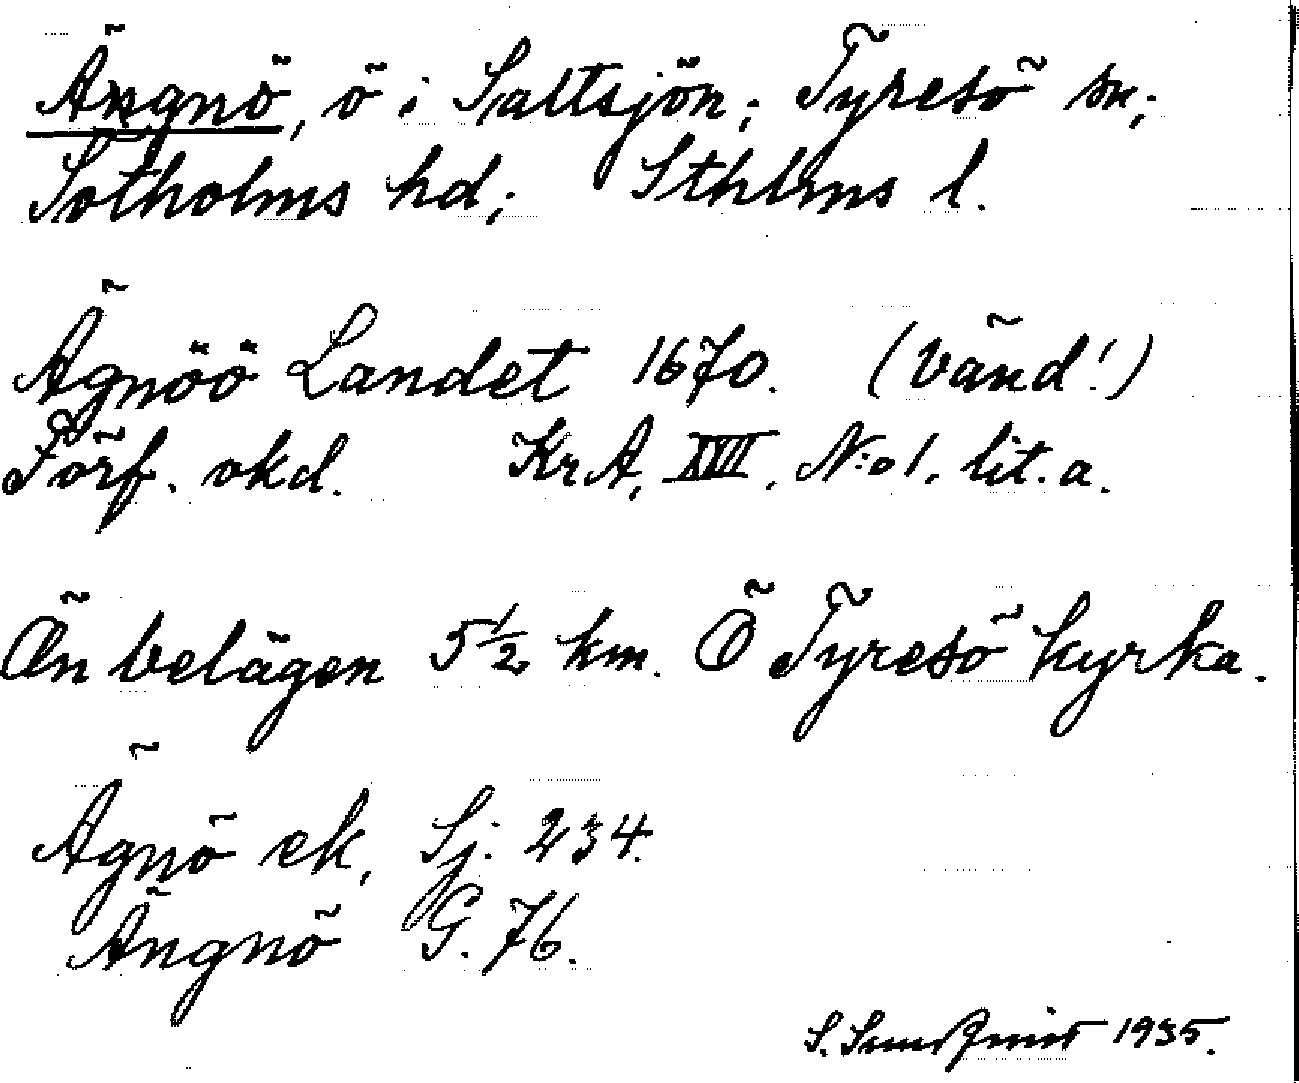 Ängnö, ö i Saltsjön; Tyresö sn;
Sotholms hd; Sthlms l.
Ägnöö Landet 1670. (vänd!)
Förf. okd. KrA, XVII, N:o 1. lit. a.
Ön belägen 5 1/2 km. Ö Tyresö kyrka.
Ägnö ek, Sj. 234.
Ängnö G. 76.
S. Sundqvist 1935.